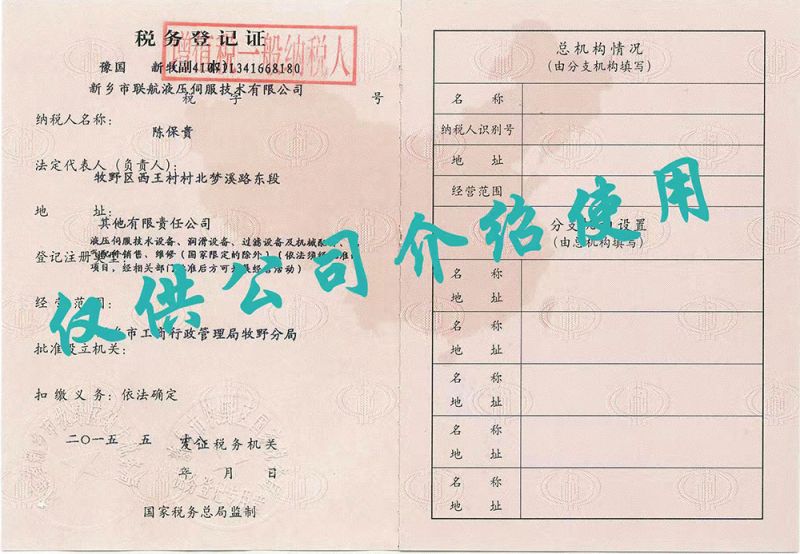 税务登记证
增值税一般纳税人
豫国 新牧(副 本)410711341668180
新乡市联航液压伺服技术有限公司
税 字 号
纳税人名称:
陈保贵
法定代表人(负责人):
牧野区西王村村北梦溪路东段
地 址:
其他有限责任公司
液压伺服技术设备、润滑设备、过滤设备及机械配
登记注册类型:
销售、维修(国家限定的除外)(依法须经
项目,经相关部 准后方可 经营活动)
经营范围:
乡市工商行政管理局牧野分局
批准设立机关:
扣缴义务:依法确定
二〇一五 五
发征税务机关
年 月 日
国家税务总局监制
总机构情况
(由分支机构填写)
名 称
纳税人识别号
地 址
经营范围
分支机构设置
(由总机构填写)
名 称
地 址
名 称
地 址
名 称
地 址
名 称
地 址
名 称
地 址
仅供公司介绍使用